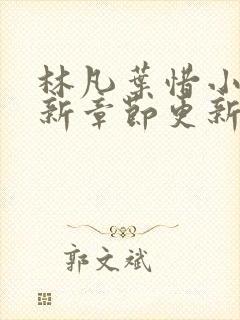 林凡葉惜小
新章節更新
郭文斌